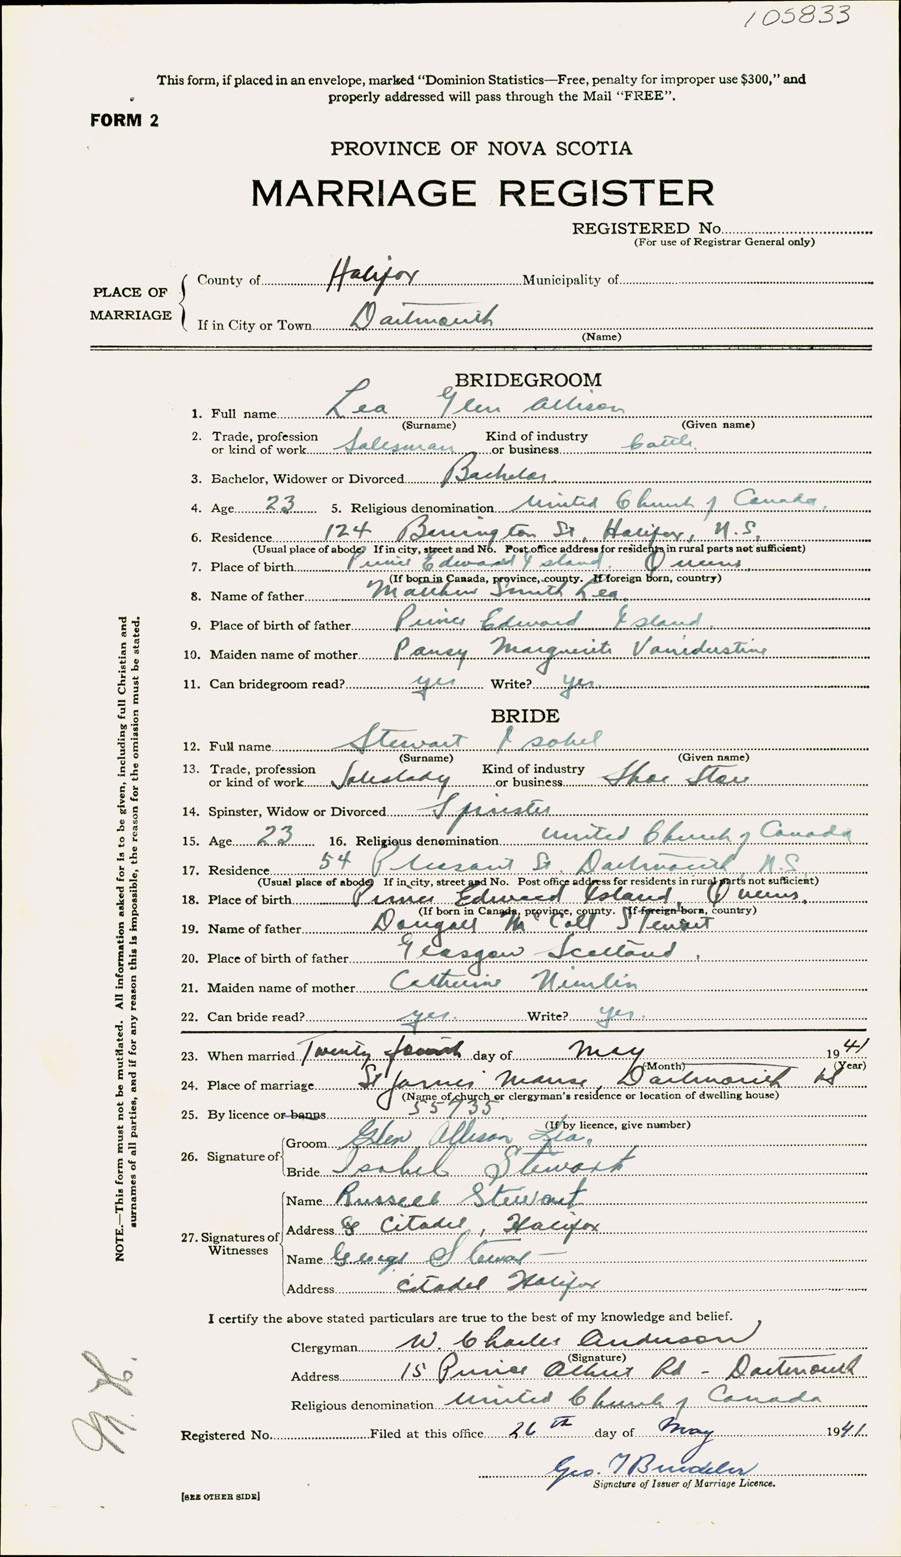 105833
This form, if placed in an envelope, marked "Dominion Statistics—Free, penalty for improper use $300," and
properly addressed will pass through the Mail "FREE".
FORM 2
PROVINCE OF NOVA SCOTIA
MARRIAGE REGISTER
REGISTERED No.
(For use of Registrar General only)
PLACE OF MARRIAGE
County of Halifax Municipality of
If in City or Town Dartmouth
(Name)
BRIDEGROOM
1. Full name Lea Glen Allison
(Surname) (Given name)
2. Trade, profession or kind of work Salesman Kind of industry or business
3. Bachelor, Widower or Divorced Bachelor
4. Age 23 5. Religious denomination United Church of Canada
6. Residence 124 Barrington St., Halifax, N.S.
(Usual place of abode) If in city, street and No. Post office address for residents in rural parts not sufficient)
7. Place of birth Prince Edward Island. Queens
(If born in Canada, province, county. If foreign born, country)
8. Name of father Matthew Smith Lea
9. Place of birth of father Prince Edward Island
10. Maiden name of mother Pansy Marguerite Vaniderstine
11. Can bridegroom read? yes Write? yes
BRIDE
12. Full name Stewart Isobel
(Surname) (Given name)
13. Trade, profession or kind of work Saleslady Kind of industry or business Shoe Store
14. Spinster, Widow or Divorced Spinster
15. Age 23 16. Religious denomination United Church of Canada
17. Residence 54 Pleasant St. Dartmouth, N.S.
(Usual place of abode) If in city, street and No. Post office address for residents in rural parts not sufficient)
18. Place of birth Prince Edward Island, Queens.
(If born in Canada, province, county. If foreign born, country)
19. Name of father Dougall McColl Stewart
20. Place of birth of father Glasgow Scotland.
21. Maiden name of mother Catherine
22. Can bride read? yes. Write? yes.
23. When married Twenty fourth day of May 1941
(Month) (Year)
24. Place of marriage St James Manse, Dartmouth NS
(Name of church or clergyman's residence or location of dwelling house)
25. By licence or banns 55735
(If by licence, give number)
26. Signature of
Groom Glen Allison Lea.
Bride Isobel Stewart
27. Signatures of Witnesses
Name Russell Stewart
Address Citadel, Halifax
Name George Stewart
Address Citadel Halifax
I certify the above stated particulars are true to the best of my knowledge and belief.
Clergyman W. Charles Anderson
(Signature)
Address 15 Prince Albert Rd - Dartmouth
Religious denomination United Church of Canada
Registered No. Filed at this office 26th day of May 1941
Geo. T
Signature of Issuer of Marriage Licence.
[SEE OTHER SIDE]
NOTE.—This form must not be mutilated. All information asked for is to be given, including full Christian and
surnames of all parties, and if for any reason this is impossible, the reason for the omission must be stated.